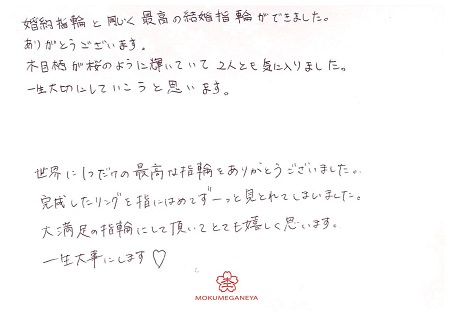 婚約指輪と同じく最高の結婚指輪ができました。
ありがとうございます。
木目柄が桜のように輝いていて2人とも気に入りました。
一生大切にしていこうと思います。
世界に1つだけの最高な指輪をありがとうございました。
完成したリングを指にはめてずーっと見とれてしまいました。
大満足の指輪にして頂いてとても嬉しく思います。
一生大事にします♡
MOKUMEGANEYA